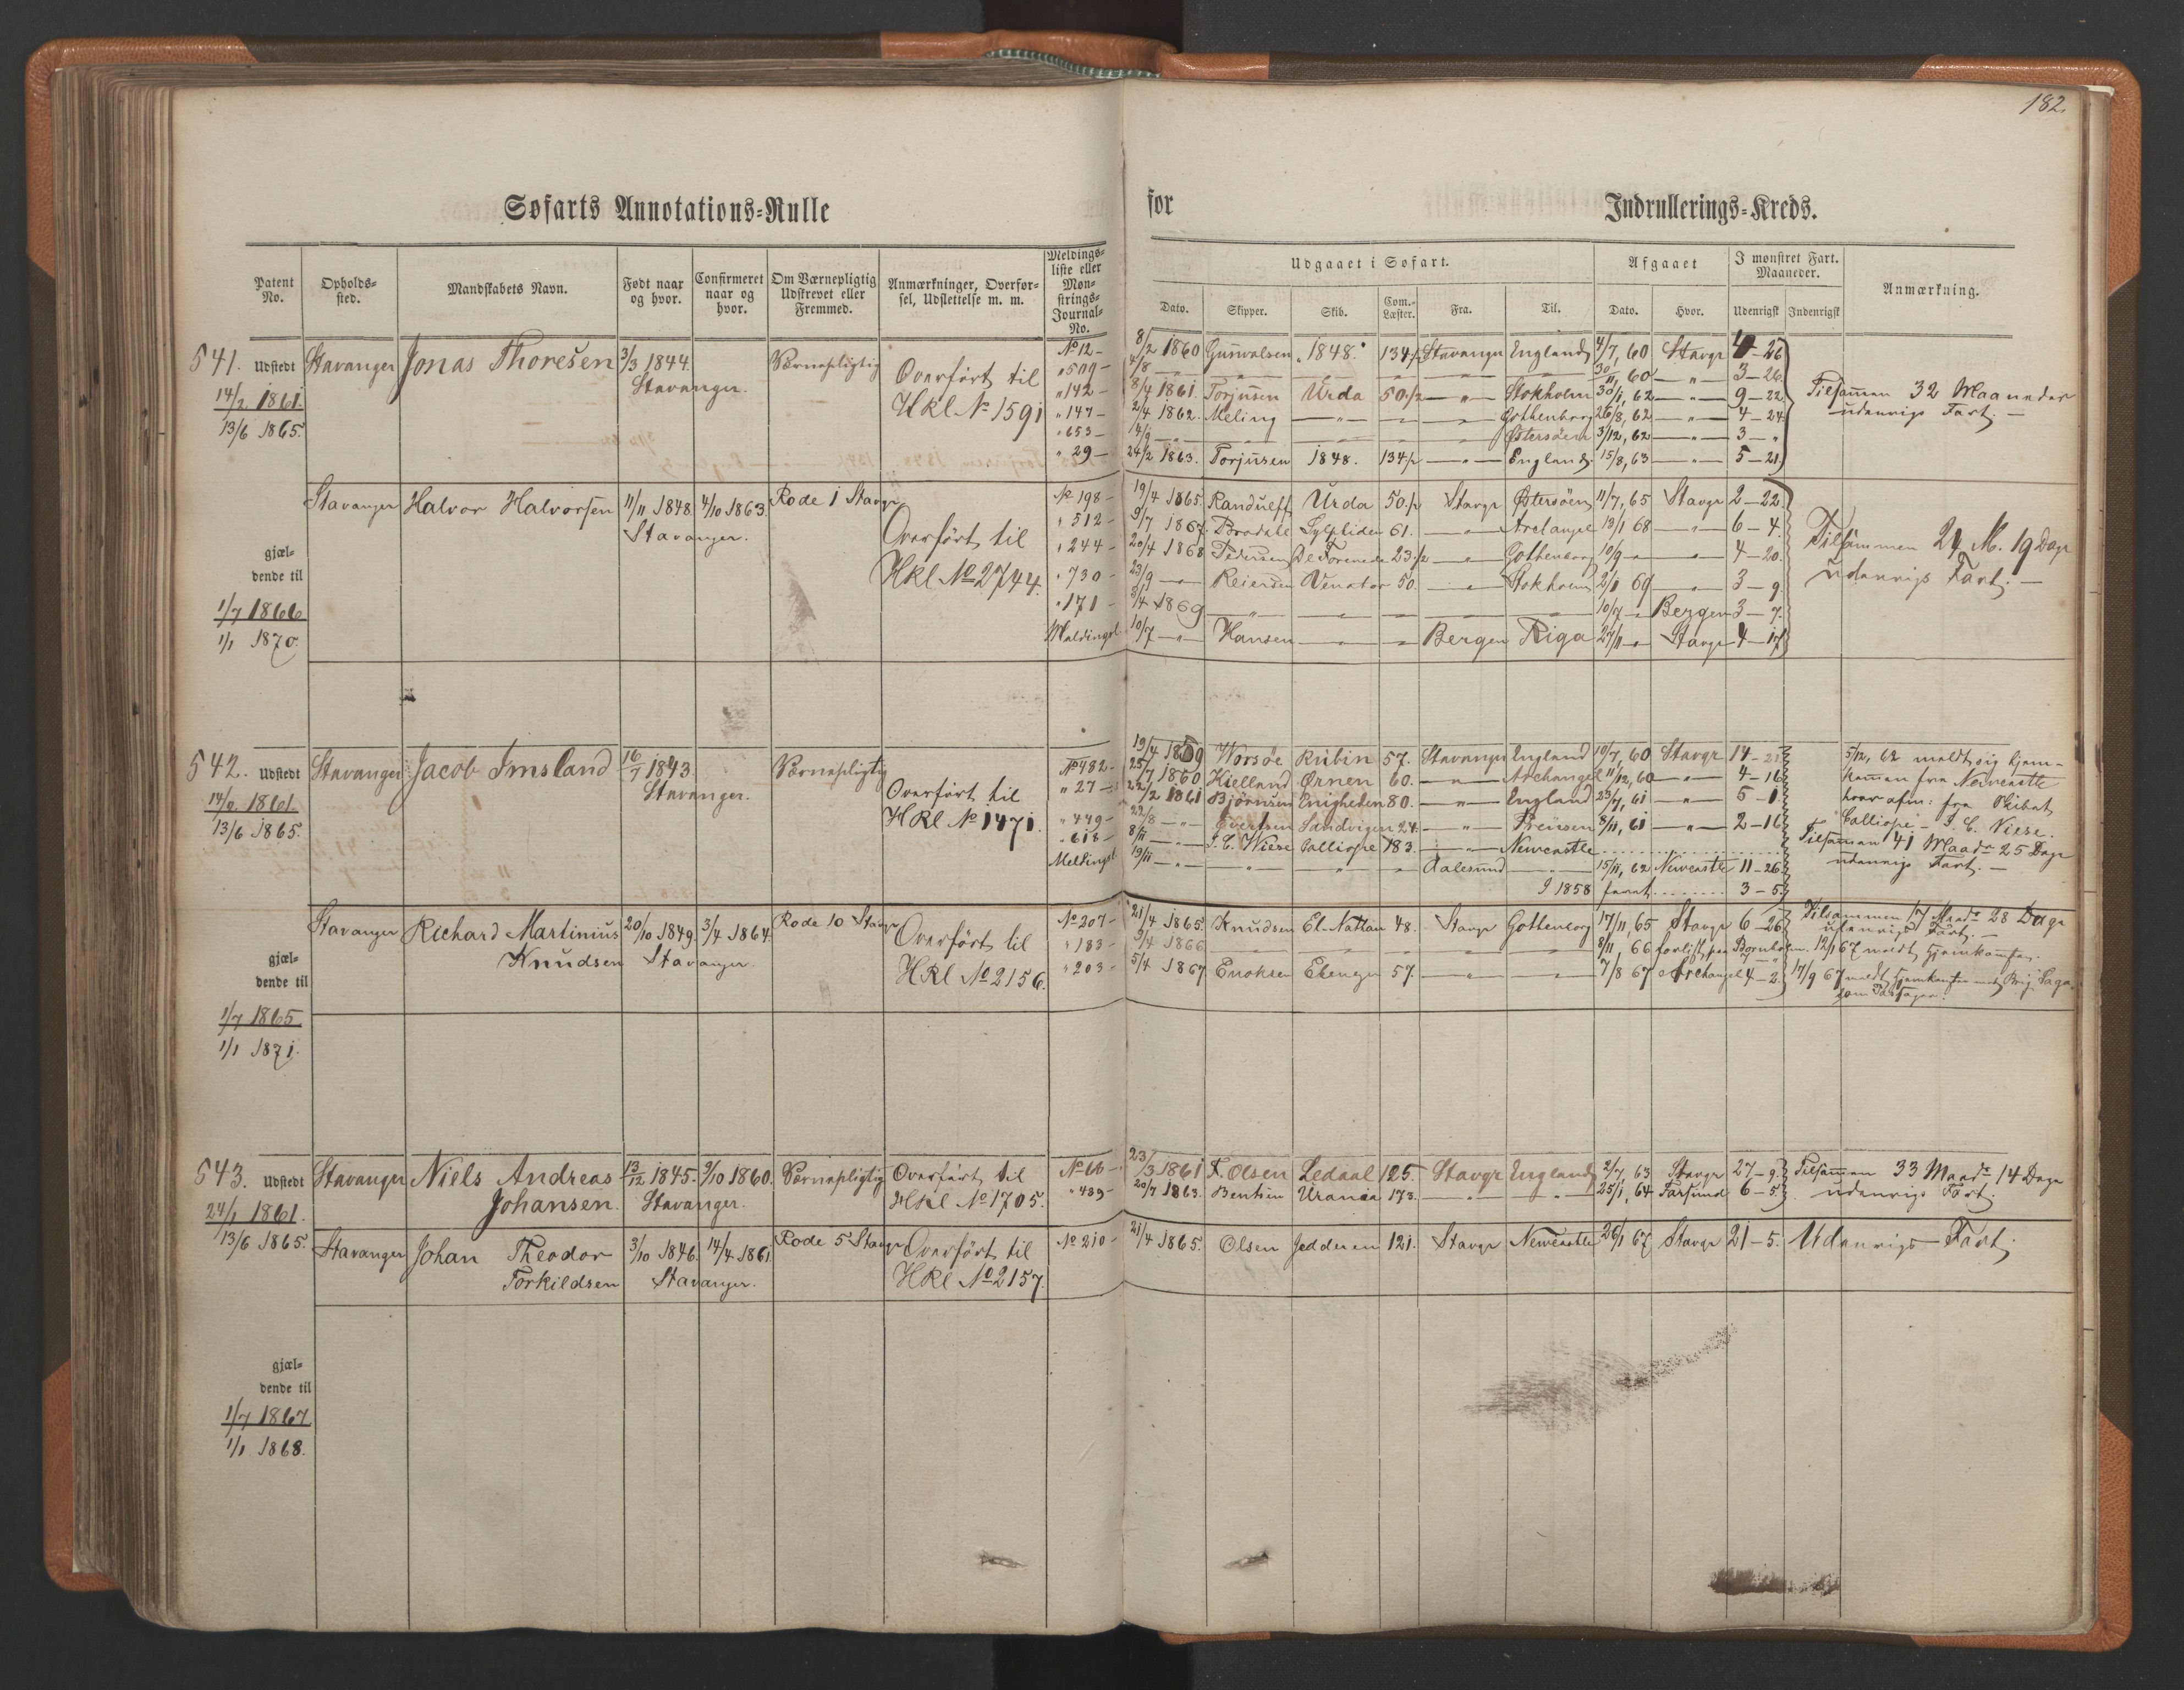 182.
Søfarts Annotations-Rulle for Indrullerings-Kreds.
Patent No.
Opholds-sted.
Mandskabets Navn.
Født naar og hvor.
Confirmeret naar og hvor.
Om Værnepligtig Udskrevet eller Fremmed.
Anmærkninger, Overførsel, Udslettelse m. m.
Meldings-liste eller Mønstrings-Journal-No.
Udgaaet i Søfart.
Dato. Skipper. Skib. Com.-Læster. Fra. Til.
Afgaaet
Dato. Hvor.
I mønstret Fart. Maaneder.
Udenrigsk Indenrigsk
Anmærkning.
541. Udstedt 14/2 1861. 13/6 1865.
Stavanger Jonas Thoresen 3/3 1844. Stavanger. Værnepligtig Overført til HRl No 1591
No 12 – 8/2 1860 Gunvalsen "1848." 134½ Stavanger England 4/7, 60 Stavgr 4–26
" 509 – 4/8 — " — 30/11, 60 — " — 3–26.
" 142 – 8/4 1861. Torjusen Urda 50½ — " — Stokholm 30/1, 62 — " — 9–22
" 147 – 2/4 1862. Meling — " — Gothenborg 26/8, 62 — " — 4–24
" 653 – 14/9 — " — Østersøen 3/12, 62 — " — 3 – "
" 29 – 24/2 1863. Torjusen 1848. 134½ — " — England. 15/8, 63 — " — 5–21
Tilsammen 32 Maaneder
udenrigs Fart. —
Stavanger Halvor Halvorsen 11/11 1848. 4/10 1863. Stavanger. Rode 1 Stavgr Overført til HRl No 2744.
No 198 – 19/4 1865. Randulff Urda 50½ Stavgr Østersøen 11/7, 65 Stavgr 2–22.
" 512 – 9/7 1867. Bradahl Sylphiden 61. — " — Archangel 13/1 68 — " — 6–4.
" 244 – 20/4 1868 Pedersen De Forenede 23½ — " — Gothenborg 10/9 — " — 4–20.
" 730 – 23/9 — " — Reiersen Venator 50. — " — Stokholm 2/1 69 — " — 3–9.
" 171 – 3/4 1869 — " — 10/7 — " — Bergen 3–7.
Meldingsl. 10/7 — " — Hansen — " — Bergen Riga 27/11 — " — Stavgr 4–17
Tilsammen 24 M. 19 Dage
udenrigs Fart. —
gjæl-
dende til
1/7 1866
1/1 1870.
542. Udstedt 14/2 1861. 13/6 1865.
Stavanger Jacob Imsland 16/7 1843 Stavanger. Værnepligtig Overført til HRl No 1471.
No 482 – 19/4 1859 Worsøe Rubin 57. Stavanger England 10/7, 60 Stavgr 14–21
" 27 – 25/7 1860 Kielland Ørnen 60. — " — Archangel 11/12, 60 — " — 4–16
22/2 1861 Bjørnsen Enigheden 80. — " — England 23/7, 61 — " — 5–1.
" 449 – 22/8 — " — Evertsen Sandvigen 24. — " — Preusen 8/11, 61 — " — 2–16
" 618 – 8/11 — " — J. C. Wiese Calliope 183. — " — Newcastle
Meldingsl. 19/11 — " — Aalesund — " — 15/11, 62 Newcastle 11–26.
I 1858 faret 3–5.
5/12, 62 meldt sig hjem-
kommen fra Newcastle
hvor afm: fra Skibet
Calliope – J. C. Wiese.
Tilsammen 41 Maadr 25 Dage
udenrigs Fart. —
Stavanger Richard Martinius Knudsen 20/10 1849. 3/4 1864. Stavanger. Rode 10 Stavgr Overført til HRl No 2156.
No 207 – 21/4 1865. Knudsen El. Nathan 48. Stavgr Gothenborg 17/11, 65 Stavgr 6–26
" 183 – 3/4 1866 — " — 8/11 66 forlist paa Bornholm.
" 203 – 5/4 1867 Enoksen Ebenzer 57 — " — 7/8 67 Archangel 4–2.
Tilsammen 17 Maadr 28 Dage
udenrigs Fart. —
12/1 67 meldt hjemkommen.
17/9 67 meldt hjemkommen med Brig "Saga"
som Passager.
gjæl-
dende til
1/7 1865.
1/1 1871.
543. Udstedt 24/1 1861. 13/6 1865.
Stavanger Niels Andreas Johansen. 13/12 1845. 9/10 1860. Stavanger. Værnepligtig Overført til HRl No 1705.
No 66 – 23/3 1861 T. Olsen Ledaal 125. Stavgr England 2/7, 63 Stavgr 27–9.
" 489 – 20/7 1863. Bentsen Urania 173. — " — 25/1, 64 Farsund 6–5.
Tilsammen 33 Maadr 14 Dage
udenrigs Fart.
Stavanger Johan Theodor Torkildsen 3/10 1846. 14/4 1861. Stavanger. Rode 5 Stavgr Overført til HRl No 2157.
No 210 – 21/4 1865. Olsen Jedderen 121. Stavgr Newcastle 26/1 67 Stavgr 21–5. Udenrigs Fart.
gjæl-
dende til
1/7 1867
1/1 1868.